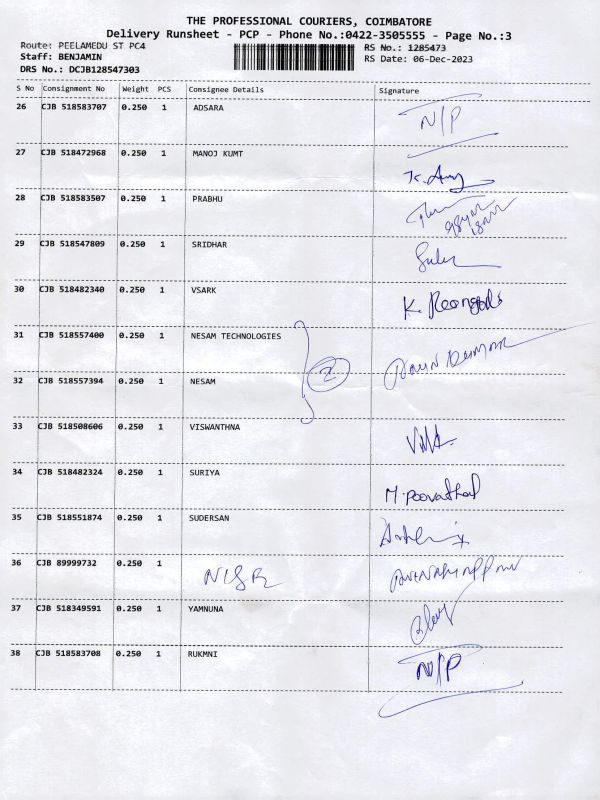 THE PROFESSIONAL COURIERS, COIMBATORE
Delivery Runsheet - PCP - Phone No.:0422-3505555 - Page No.:3
Route: PEELAMEDU ST PC4 RS No.: 1285473
Staff: BENJAMIN RS Date: 06-Dec-2023
DRS No.: DCJB128547303
S No Consignment No Weight PCS Consignee Details Signature
26 CJB 518583707 0.250 1 ADSARA N/P
27 CJB 518472968 0.250 1 MANOJ KUMT
28 CJB 518583507 0.250 1 PRABHU
29 CJB 518547809 0.250 1 SRIDHAR
30 CJB 518482340 0.250 1 VSARK
31 CJB 518557400 0.250 1 NESAM TECHNOLOGIES
2
32 CJB 518557394 0.250 1 NESAM
33 CJB 518508606 0.250 1 VISWANTHNA
34 CJB 518482324 0.250 1 SURIYA M. Poovathal
35 CJB 518551874 0.250 1 SUDERSAN
36 CJB 89999732 0.250 1
37 CJB 518349591 0.250 1 YAMNUNA
38 CJB 518583708 0.250 1 RUKMNI N/P